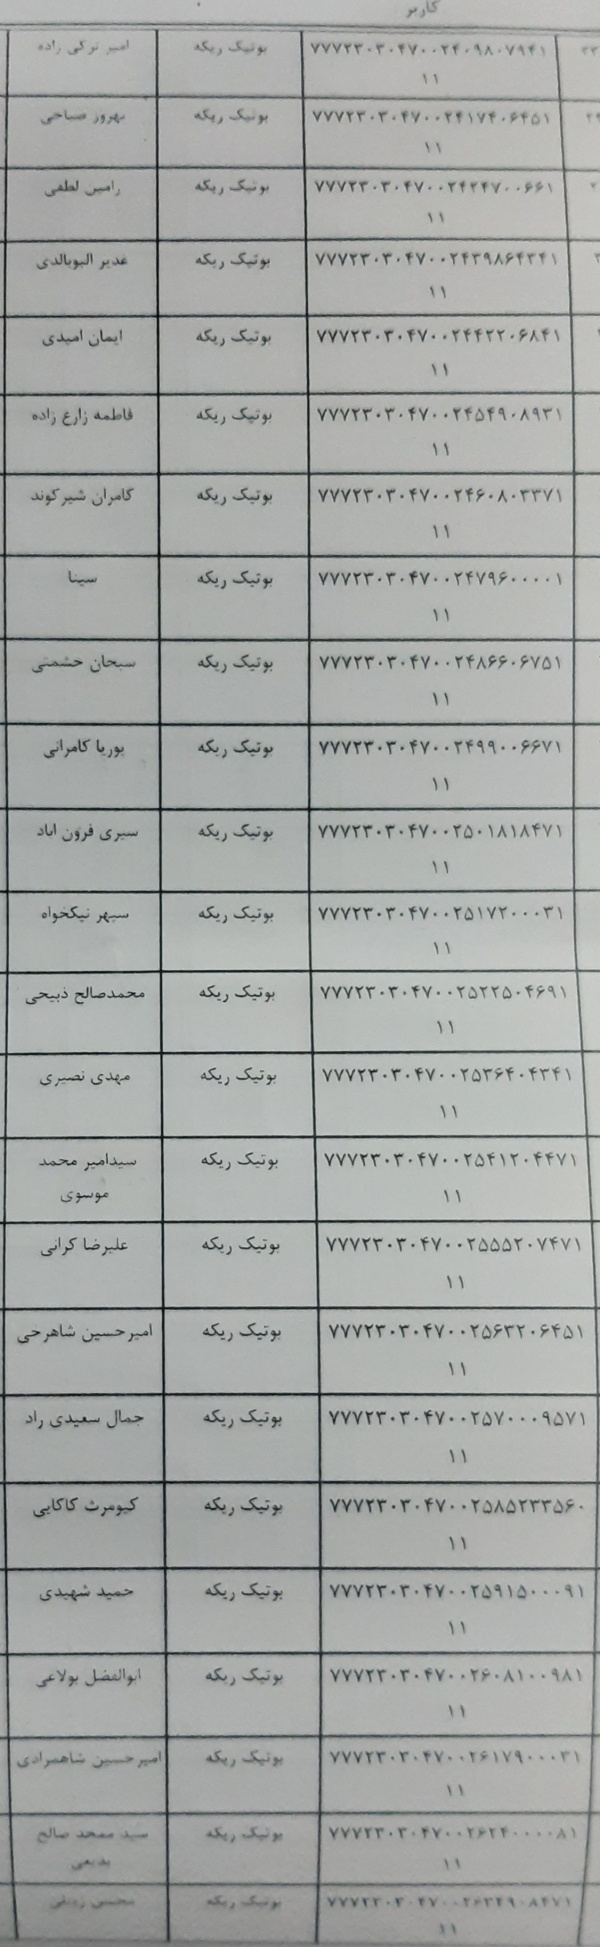 کاربر
۷۷۷۲۳۰۳۰۴۷۰۰۲۴۰۹۸۰۷۹۴۱ بوتیک ریکه امیر ترکی زاده
۱۱
۷۷۷۲۳۰۳۰۴۷۰۰۲۴۱۷۴۰۶۴۵۱ بوتیک ریکه بهروز صباحی
۱۱
۷۷۷۲۳۰۳۰۴۷۰۰۲۴۲۴۷۰۰۶۶۱ بوتیک ریکه رامین لطفی
۱۱
۷۷۷۲۳۰۳۰۴۷۰۰۲۴۳۹۸۶۴۳۴۱ بوتیک ریکه غدیر البوبالدی
۱۱
۷۷۷۲۳۰۳۰۴۷۰۰۲۴۴۲۲۰۶۸۴۱ بوتیک ریکه ایمان امیدی
۱۱
۷۷۷۲۳۰۳۰۴۷۰۰۲۴۵۴۹۰۸۹۳۱ بوتیک ریکه فاطمه زارع زاده
۱۱
۷۷۷۲۳۰۳۰۴۷۰۰۲۴۶۰۸۰۳۳۷۱ بوتیک ریکه کامران شیرکوند
۱۱
۷۷۷۲۳۰۳۰۴۷۰۰۲۴۷۹۶۰۰۰۰۱ بوتیک ریکه سینا
۱۱
۷۷۷۲۳۰۳۰۴۷۰۰۲۴۸۶۶۰۶۷۵۱ بوتیک ریکه سبحان حشمتی
۱۱
۷۷۷۲۳۰۳۰۴۷۰۰۲۴۹۹۰۰۶۶۷۱ بوتیک ریکه پوریا کامرانی
۱۱
۷۷۷۲۳۰۳۰۴۷۰۰۲۵۰۱۸۱۸۴۷۱ بوتیک ریکه سیری فرون اباد
۱۱
۷۷۷۲۳۰۳۰۴۷۰۰۲۵۱۷۲۰۰۰۳۱ بوتیک ریکه سپهر نیکخواه
۱۱
۷۷۷۲۳۰۳۰۴۷۰۰۲۵۲۲۵۰۴۶۹۱ بوتیک ریکه محمدصالح ذبیحی
۱۱
۷۷۷۲۳۰۳۰۴۷۰۰۲۵۳۶۴۰۴۳۴۱ بوتیک ریکه مهدی نصیری
۱۱
۷۷۷۲۳۰۳۰۴۷۰۰۲۵۴۱۲۰۴۴۷۱ بوتیک ریکه سیدامیر محمد
۱۱ موسوی
۷۷۷۲۳۰۳۰۴۷۰۰۲۵۵۵۲۰۷۴۷۱ بوتیک ریکه علیرضا کرانی
۱۱
۷۷۷۲۳۰۳۰۴۷۰۰۲۵۶۳۲۰۶۴۵۱ بوتیک ریکه امیرحسین شاهرخی
۱۱
۷۷۷۲۳۰۳۰۴۷۰۰۲۵۷۰۰۰۹۵۷۱ بوتیک ریکه جمال سعیدی راد
۱۱
۷۷۷۲۳۰۳۰۴۷۰۰۲۵۸۵۲۳۳۵۶۰ بوتیک ریکه کیومرث کاکایی
۱۱
۷۷۷۲۳۰۳۰۴۷۰۰۲۵۹۱۵۰۰۰۹۱ بوتیک ریکه حمید شهیدی
۱۱
۷۷۷۲۳۰۳۰۴۷۰۰۲۶۰۸۱۰۰۹۸۱ بوتیک ریکه ابوالفضل بولاغی
۱۱
۷۷۷۲۳۰۳۰۴۷۰۰۲۶۱۷۹۰۰۰۳۱ بوتیک ریکه امیرحسین شاهمرادی
۱۱
۷۷۷۲۳۰۳۰۴۷۰۰۲۶۲۴۰۰۰۰۸۱ بوتیک ریکه سید محمد صالح
۱۱ بدیعی
۷۷۷۲۳۰۳۰۴۷۰۰۲۶۳۴۹۰۸۴۷۱ بوتیک ریکه محسن
۱۱